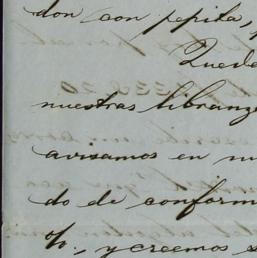 don con pepita,
Queda
nuestras libranz
avisamos en nu
do de conform
%., y creemos s